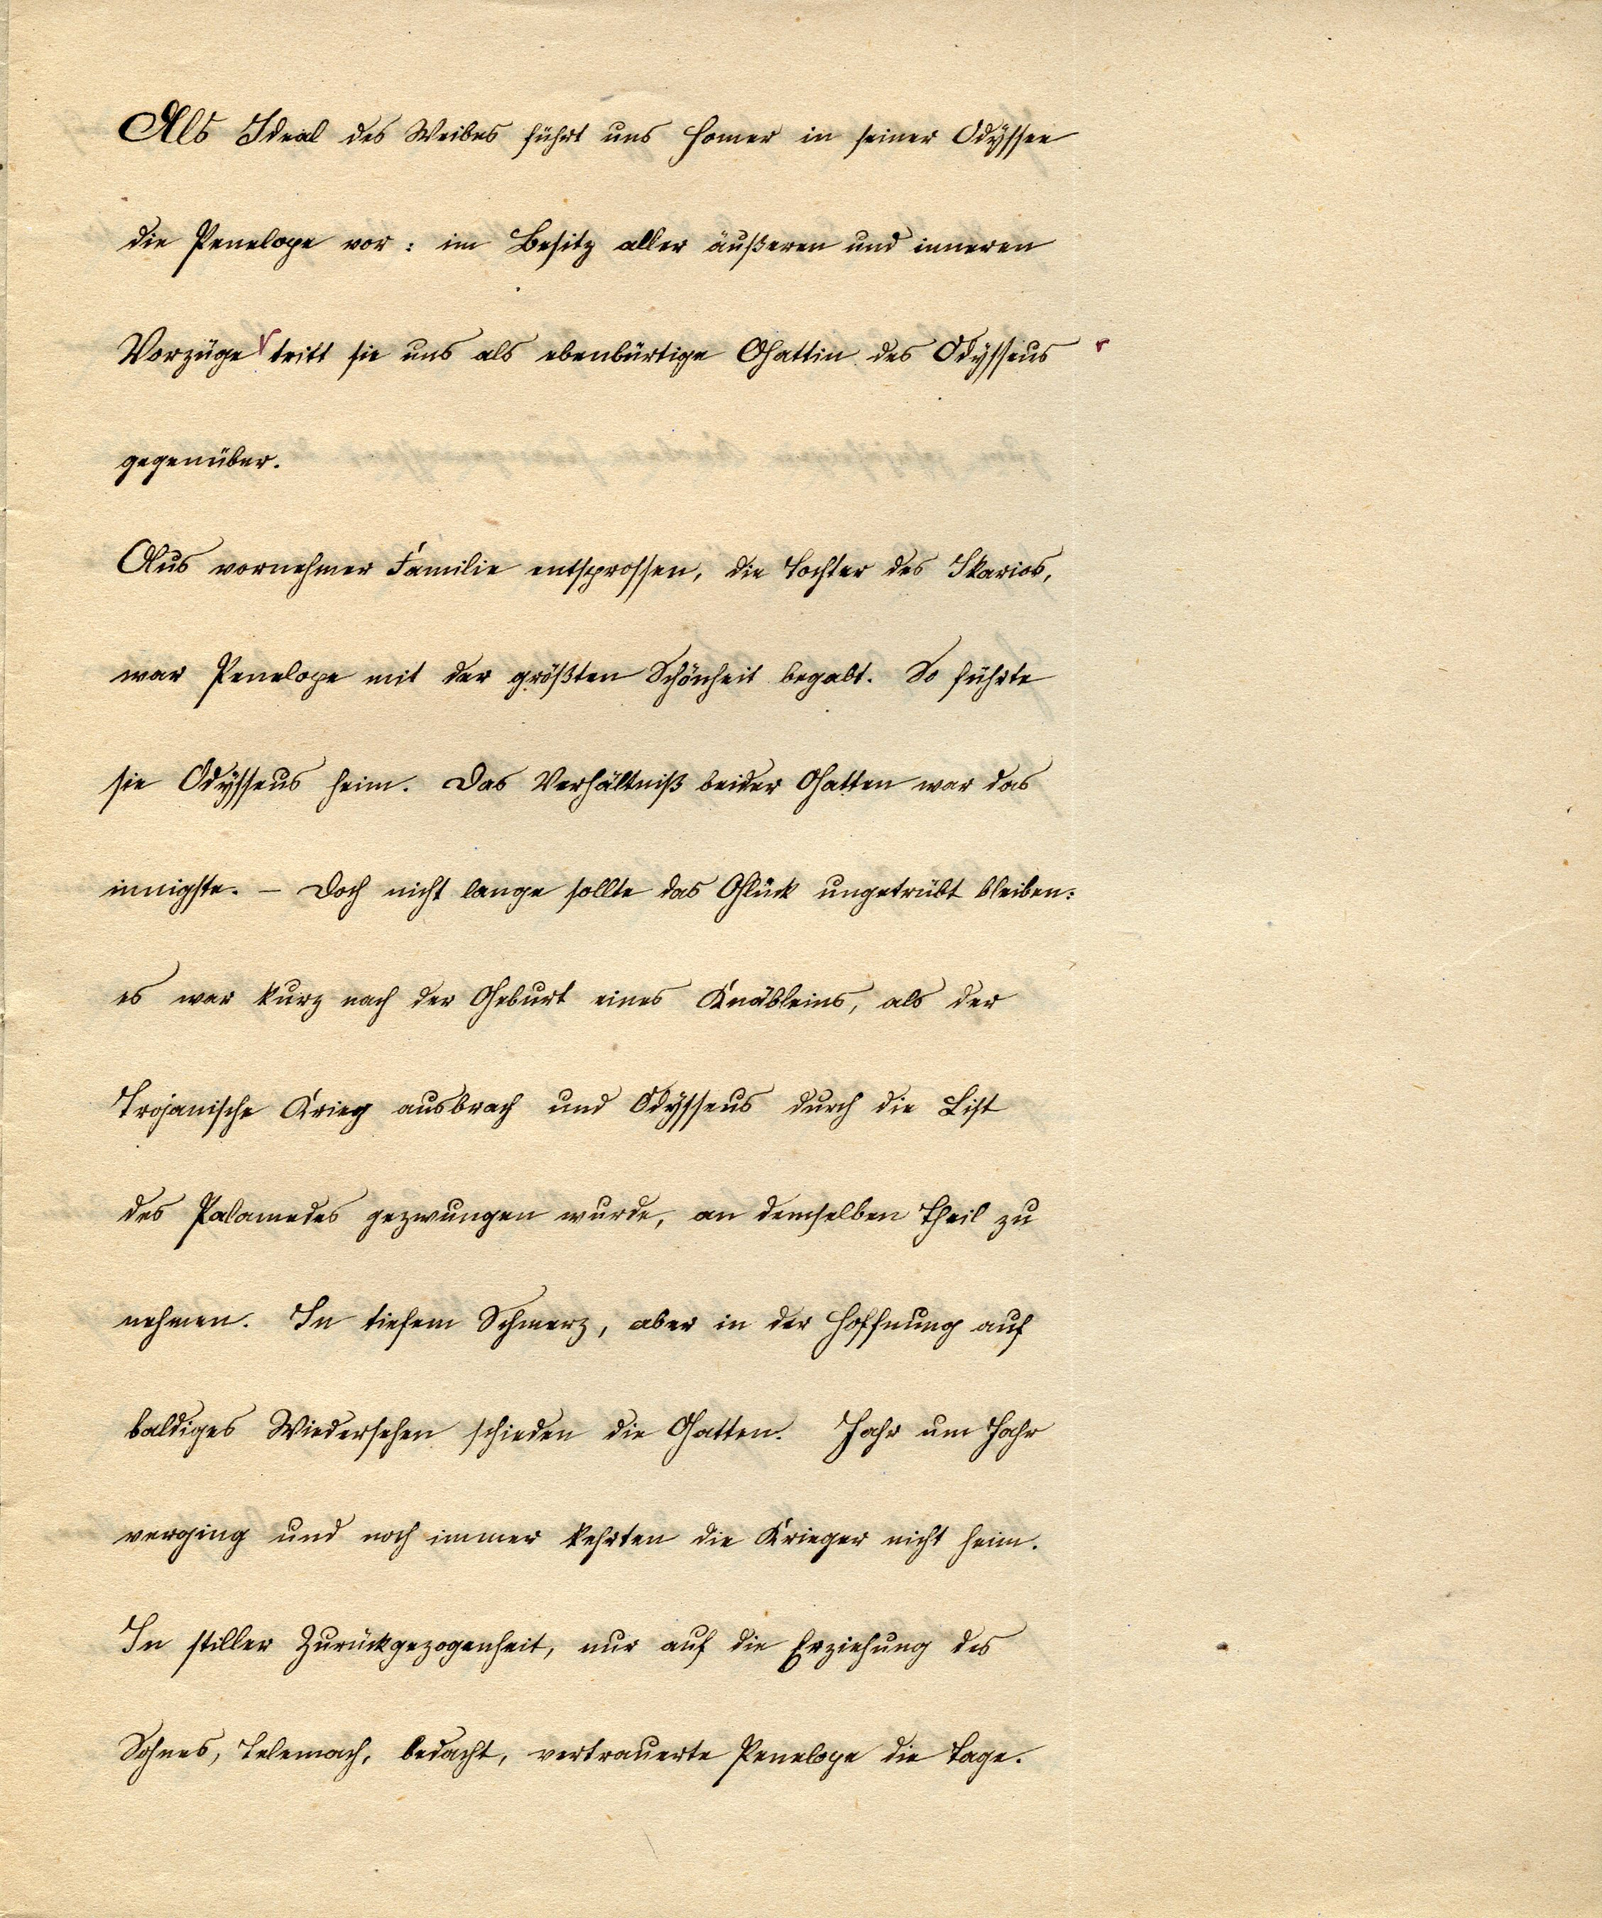 Als Ideal des Weibes führt uns Homer in seiner Odÿssee
die Penelope vor: im Besitz aller äußeren und inneren
Vorzüge tritt sie uns als ebenbürtige Gattin des Odÿsseus
gegenüber.
Aus vornehmer Familie entsprossen, die Tochter des Ikarios,
war Penelope mit der größten Schönheit begabt. So führte
sie Odÿsseus heim. Das Verhältniß beider Gatten war das
innigste. – Doch nicht lange sollte das Glück ungetrübt bleiben:
es war kurz nach der Geburt eines Knäbleins, als der
Trojanische Krieg ausbrach und Odÿsseus durch die List
des Palamedes gezwungen wurde, an demselben Theil zu
nehmen. In tiefem Schmerz, aber in der Hoffnung auf
baldiges Wiedersehen schieden die Gatten. Jahr um Jahr
verging und noch immer kehrten die Krieger nicht heim.
In stiller Zurückgezogenheit, nur auf die Erziehung des
Sohnes, Telemach, bedacht, vertrauerte Penelope die Tage.